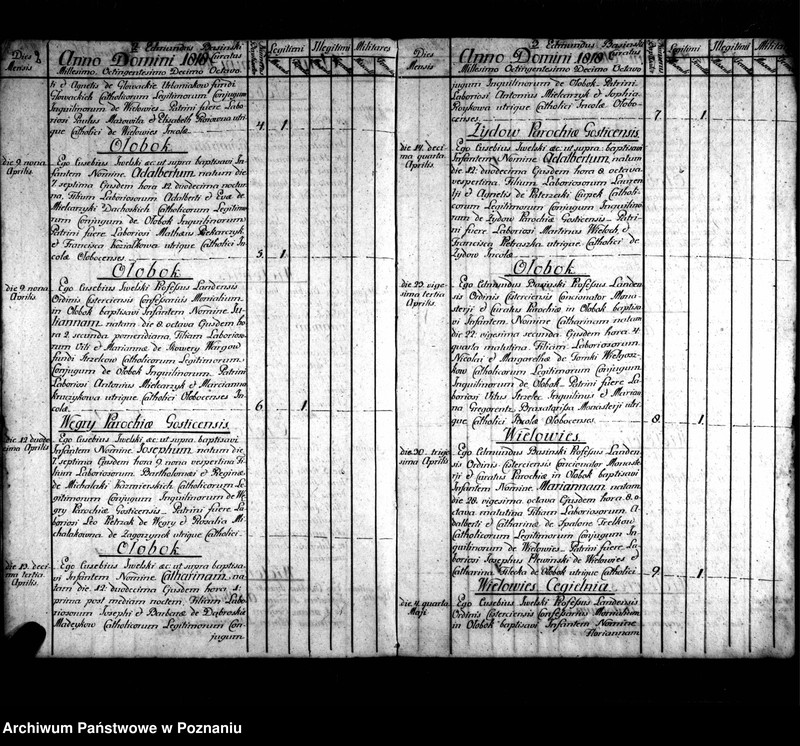 Dies
Mensis
P. Edmundus Basinski
Curatus
Anno Domini 1818
Millesimo Octingentesimo Decimo Octavo
Legitimi
Illegitimi
Militares
ti et Agnetis de Glowackie
Glowackich Catholicorum Legitimorum Conjugum
Inquilinorum de Wielowies Patrini fuere Labo
riosi Paulus Mazowita et Elisabeth utri
que Catholici de Wielowies Incolæ.
4. 1
Olobok
die 9. nona
Aprilis.
Ego Eusebius Iwelski ac ut supra baptisavi In
fantem Nomine Adalbertum, natum die
7. septima Ejusdem hora 12. duodecima noctur
na. Filium Laboriosorum Adalberti et Evæ de
Miekarzyki Dachoskich Catholicorum Legitimo
rum Conjugum de Olobok Inquilinorum
Patrini fuere Laboriosi Mathæus Piekarczyk
et Francisca Kozialkowa utrique Catholici In
colæ Olobocenses
5. 1
Olobok
die 9. nona
Aprilis
Ego Eusebius Iwelski Professus Landensis
Ordinis Cisterciensis Confessarius Monialium
in Olobok baptisavi Infantem Nomine Ju
liannam natam die 8. octava Ejusdem ho
ra 2. secunda pomeridiana, Filiam Laborioso
rum Viti et Mariannæ de Skowery Wargow
fundi Strzekow Catholicorum Legitimorum
Conjugum de Olobok Inquilinorum. Patrini
Laboriosi Antonius Miekarzyk et Marcianna
Kruczykowa utrique Catholici Olobocenses In
colæ.
6. 1
Węgry Parochiæ Gosticensis
die 12 duode
cima Aprilis
Ego Eusebius Iwelski ac ut supra baptisavi
Infantem Nomine Josephum natum die
7. septima Ejusdem hora 9. nona vespertina Fi
lium Laboriosorum Bartholomæi et Reginæ
de Michalski Kazmierskich Catholicorum Le
gitimorum Conjugum Inquilinorum de Wę
gry Parochiæ Gosticensis Patrini fuere La
boriosi Leo Pietrzak de Węgry et Rosalia Mi
chalakowna de Zagorzynek utrique Catholici.
Olobok
die 13. deci
ma tertia
Aprilis.
Ego Eusebius Iwelski ac ut supra baptisa
vi Infantem Nomine Catharinam, na
tam die 12. duodecima Ejusdem hora 1.
prima post mediam noctem Filiam Labo
riosorum Josephi et Barbaræ de Dąbroskie
Madeykow Catholicorum Legitimorum Con
jugum
Dies
Mensis
P. Edmundus Basinski
Curatus
Anno Domini 1818
Millesimo Octingentesimo Decimo Octavo
Legitimi
Illegitimi
jugum Inquilinorum de Olobok. Patrini
Laboriosi Antonius Miekarzyk et Sophia
utrique Catholici Incolæ Olobo
censes.
7. 1.
Lydow Parochiæ Gosticensis
die 14. deci
ma quarta
Aprilis.
Ego Eusebius Iwelski ac ut supra baptisavi
Infantem Nomine Adalbertum, natum
die 12. duodecima Ejusdem hora 8. octava
vespertina Filium Laboriosorum Lauren
tii et Agnetis de Paterzeski Czapek Catholi
corum Legitimorum Conjugum Inquilino
rum de Lydow Parochiæ Gosticensis Patri
ni fuere Laboriosi Martinus Wieloch, et
Francisca Pietraszka utrique Catholici de
Lydow Incolæ
Olobok
die 23. vige
sima tertia
Aprilis.
Ego Edmundus Basinski Professus Landen
sis Ordinis Cisterciensis Concionator Mona
sterii et Curatus Parochiæ in Olobok baptisa
vi Infantem Nomine Catharinam natam
die 22. vigesima secunda Ejusdem hora 4.
quarta matutina Filiam Laboriosorum
Nicolai et Margarethæ de Tomki Wielgosz
kow Catholicorum Legitimorum Conjugum
Inquilinorum de Olobok. Patrini fuere La
boriosi Vitus Strzelec Inquilinus et Marian
na Gregorentz Braxatorissa Monasterii utri
que Catholici Incolæ Olobocenses.
8. 1.
Wielowies
die 30. trige
sima Aprilis
Ego Edmundus Basinski Professus Landen
sis Ordinis Cisterciensis Concionator Monas
terii et Curatus Parochiæ in Olobok baptisavi
Infantem Nomine Mariannam natam
die 28. vigesima octava Ejusdem hora 8. o
ctava matutina Filiam Laboriosorum A
dalberti et Catharinæ de Spalone Trelkow
Catholicorum Legitimorum Conjugum In
quilinorum de Wielowies Patrini fuere La
boriosi Josephus Plewinski de Wielowies et
Catharina Filecka de Olobok utrique Catholici
9. 1.
Wielowies Cegielnia
die 4. quarta
Maji
Ego Eusebius Iwelski Professus Landensis
Ordinis Cisterciensis Confessarius Monialium
in Olobok baptisavi Infantem Nomine
Floriannam
Archiwum Państwowe w Poznaniu